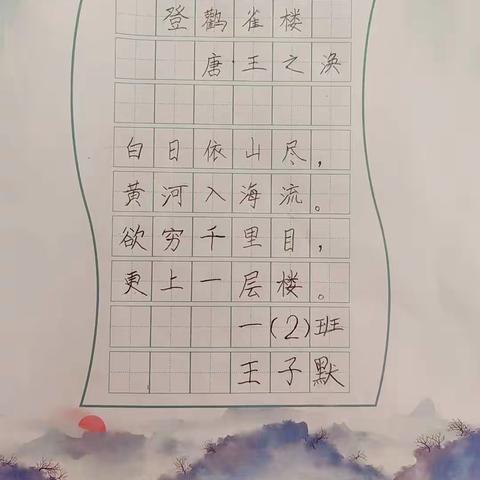 登鹳雀楼
唐·王之涣
白日依山尽，
黄河入海流。
欲穷千里目，
更上一层楼。
一(2)班
王子默